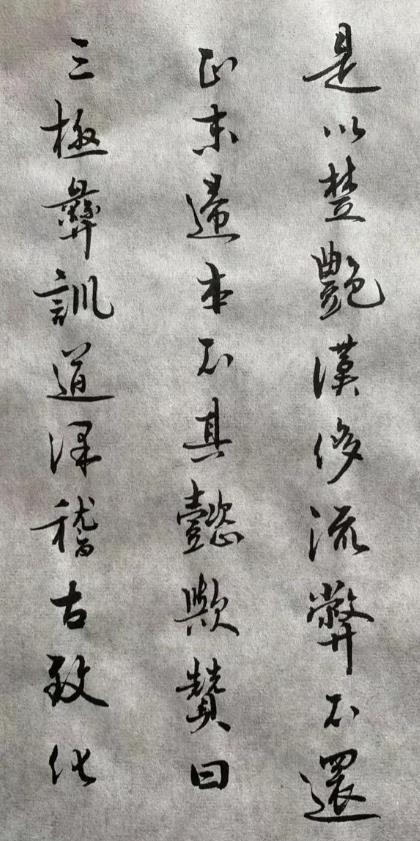 是以楚艷漢侈流弊不還
正末歸本不其懿歟贊曰
三極彝訓道深稽古致化